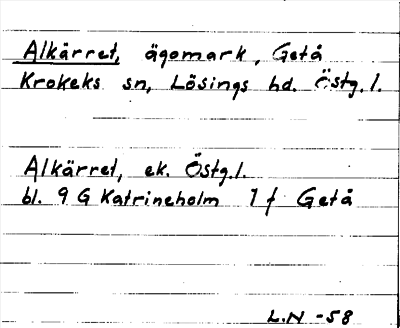 Alkärret, ägomark, Getå
Krokeks sn, Lösings hd. Östg.l.
Alkärret, ek. Östg.l.
bl. 9 G Katrineholm 1 f Getå
L.N -58